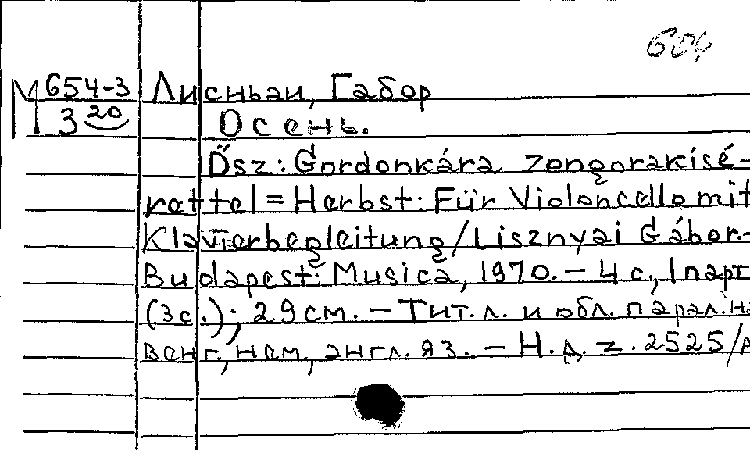 604
М 654-3 Лисньаи, Габор
3 20 Осень.
Ősz: Gordonkára zongorakisé-
rettel = Herbst: Für Violoncello mit
Klavierbegleitung / Lisznyai Gábor.-
Budapest: Musica, 1970. - 4 с., 1 парт
(3с.); 29 см. - Тит. л. и обл. парал. на
венг., нем., англ. яз. - Н. д. z. 2525/